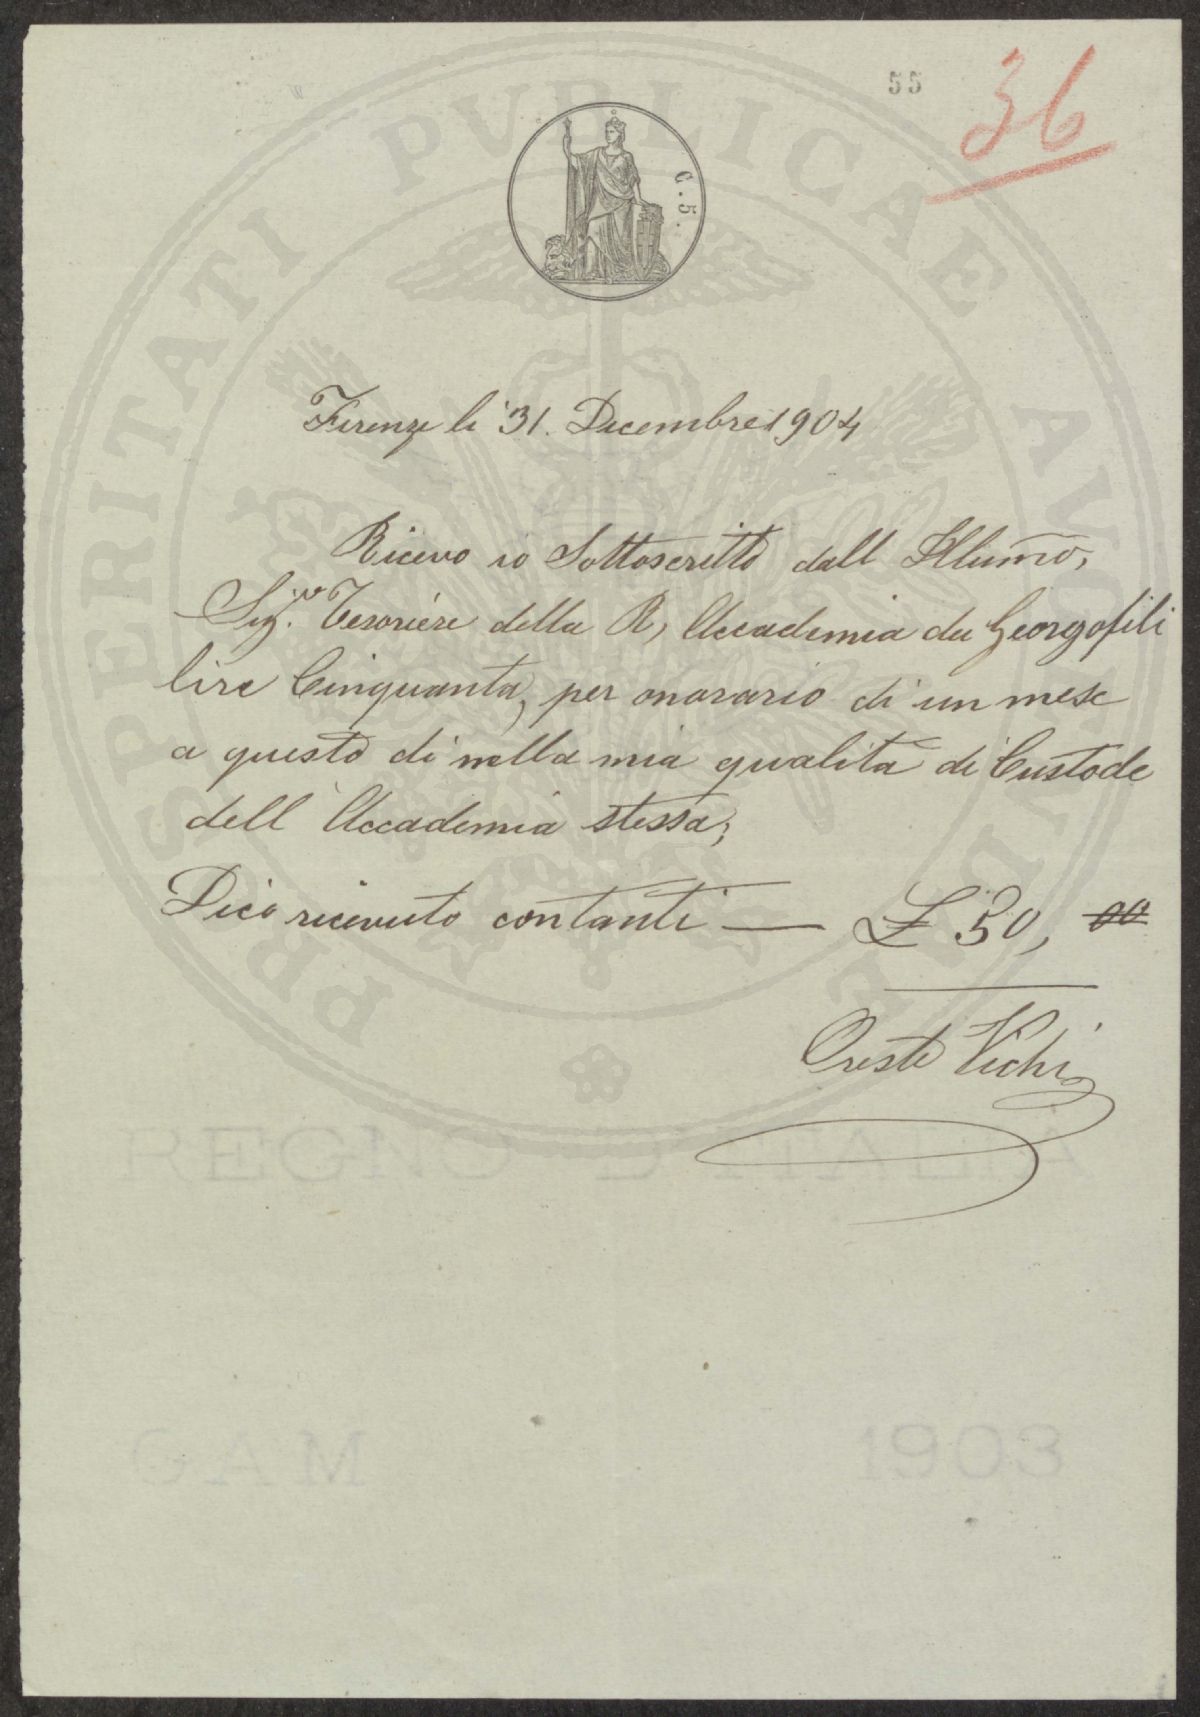 55
36
C. 5.
PROSPERITATI PVBLICAE AVGENDAE
Firenze li 31. Dicembre 1904
Ricevo io Sottoscritto dall Illumo,
Sigr. Tesoriere della R, Accademia dei Georgofili
lire Cinquanta, per onorario di un mese
a questo di nella mia qualita di Custode
dell Accademia stessa;
Dico ricevuto contanti — £ 50, 00
Oreste Vichi
REGNO D'ITALIA
GAM 1903